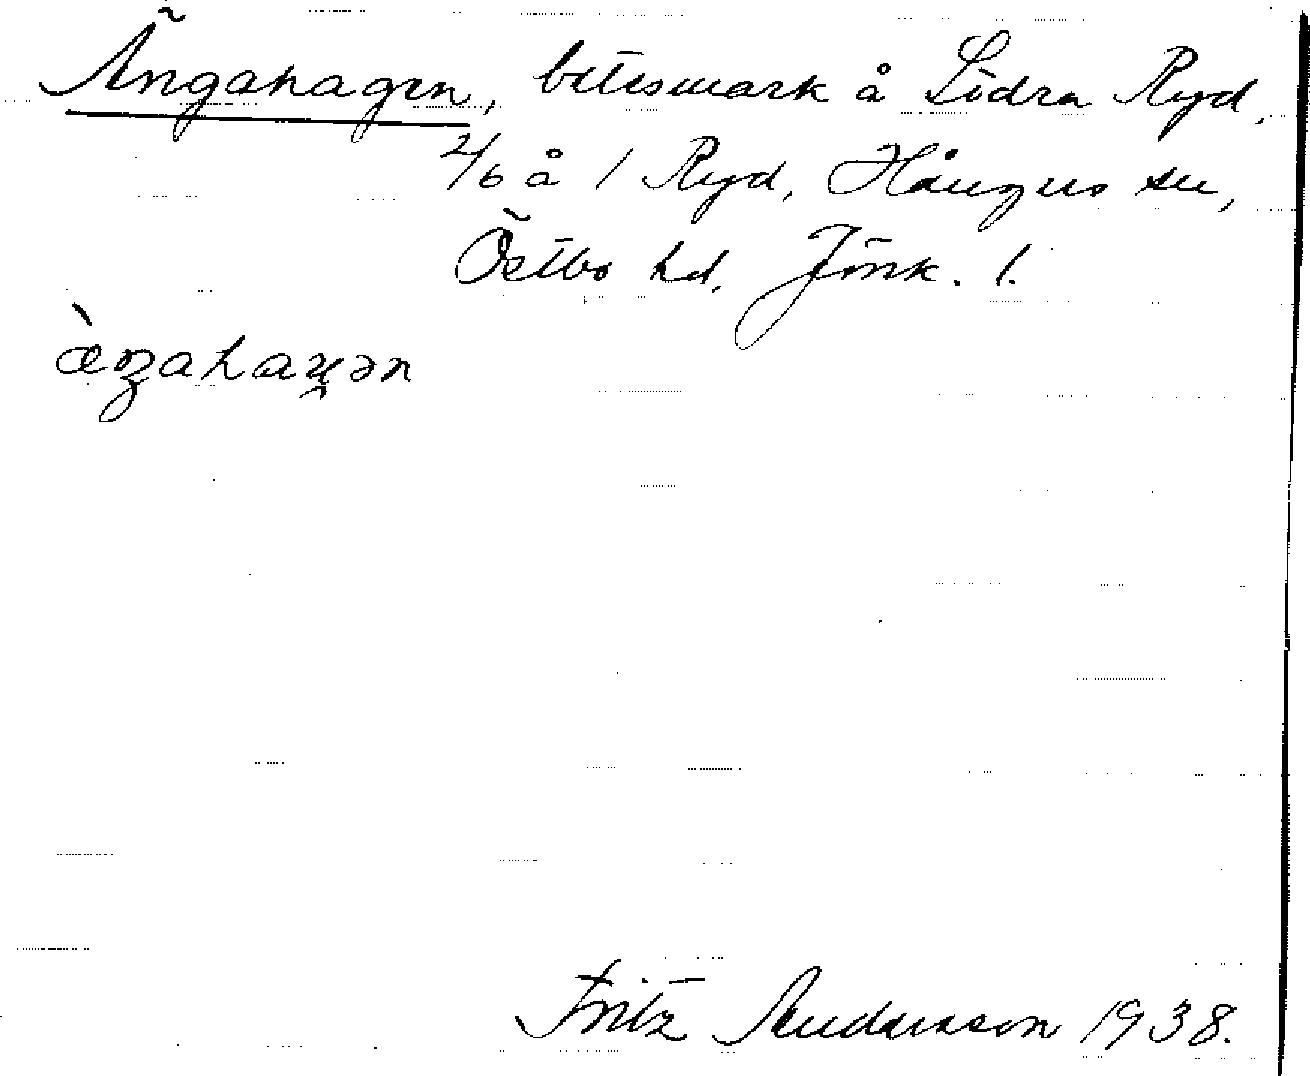 Ängahagen, betesmark å Södra Ryd,
2/6 å 1 Ryd, Hånger sn,
Östbo hd, Jönk. l.
æ̀ŋahaɡən
Fritz Andersson 1938.